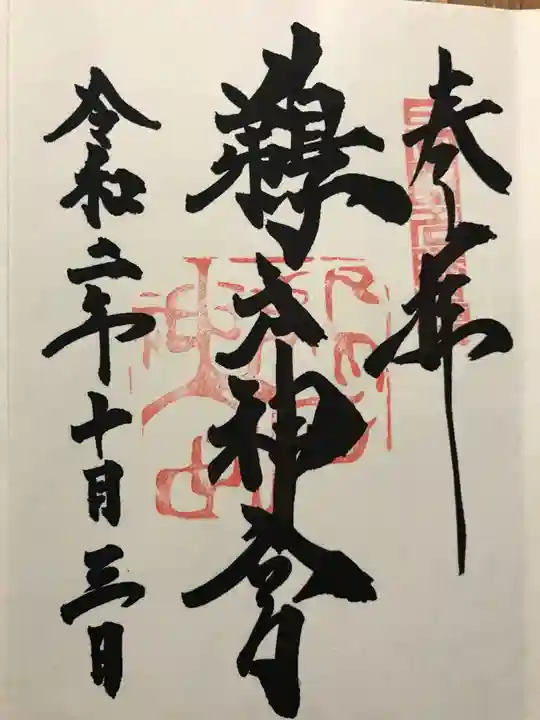 奉拝
鵜戸神宮
令和二年十月三日